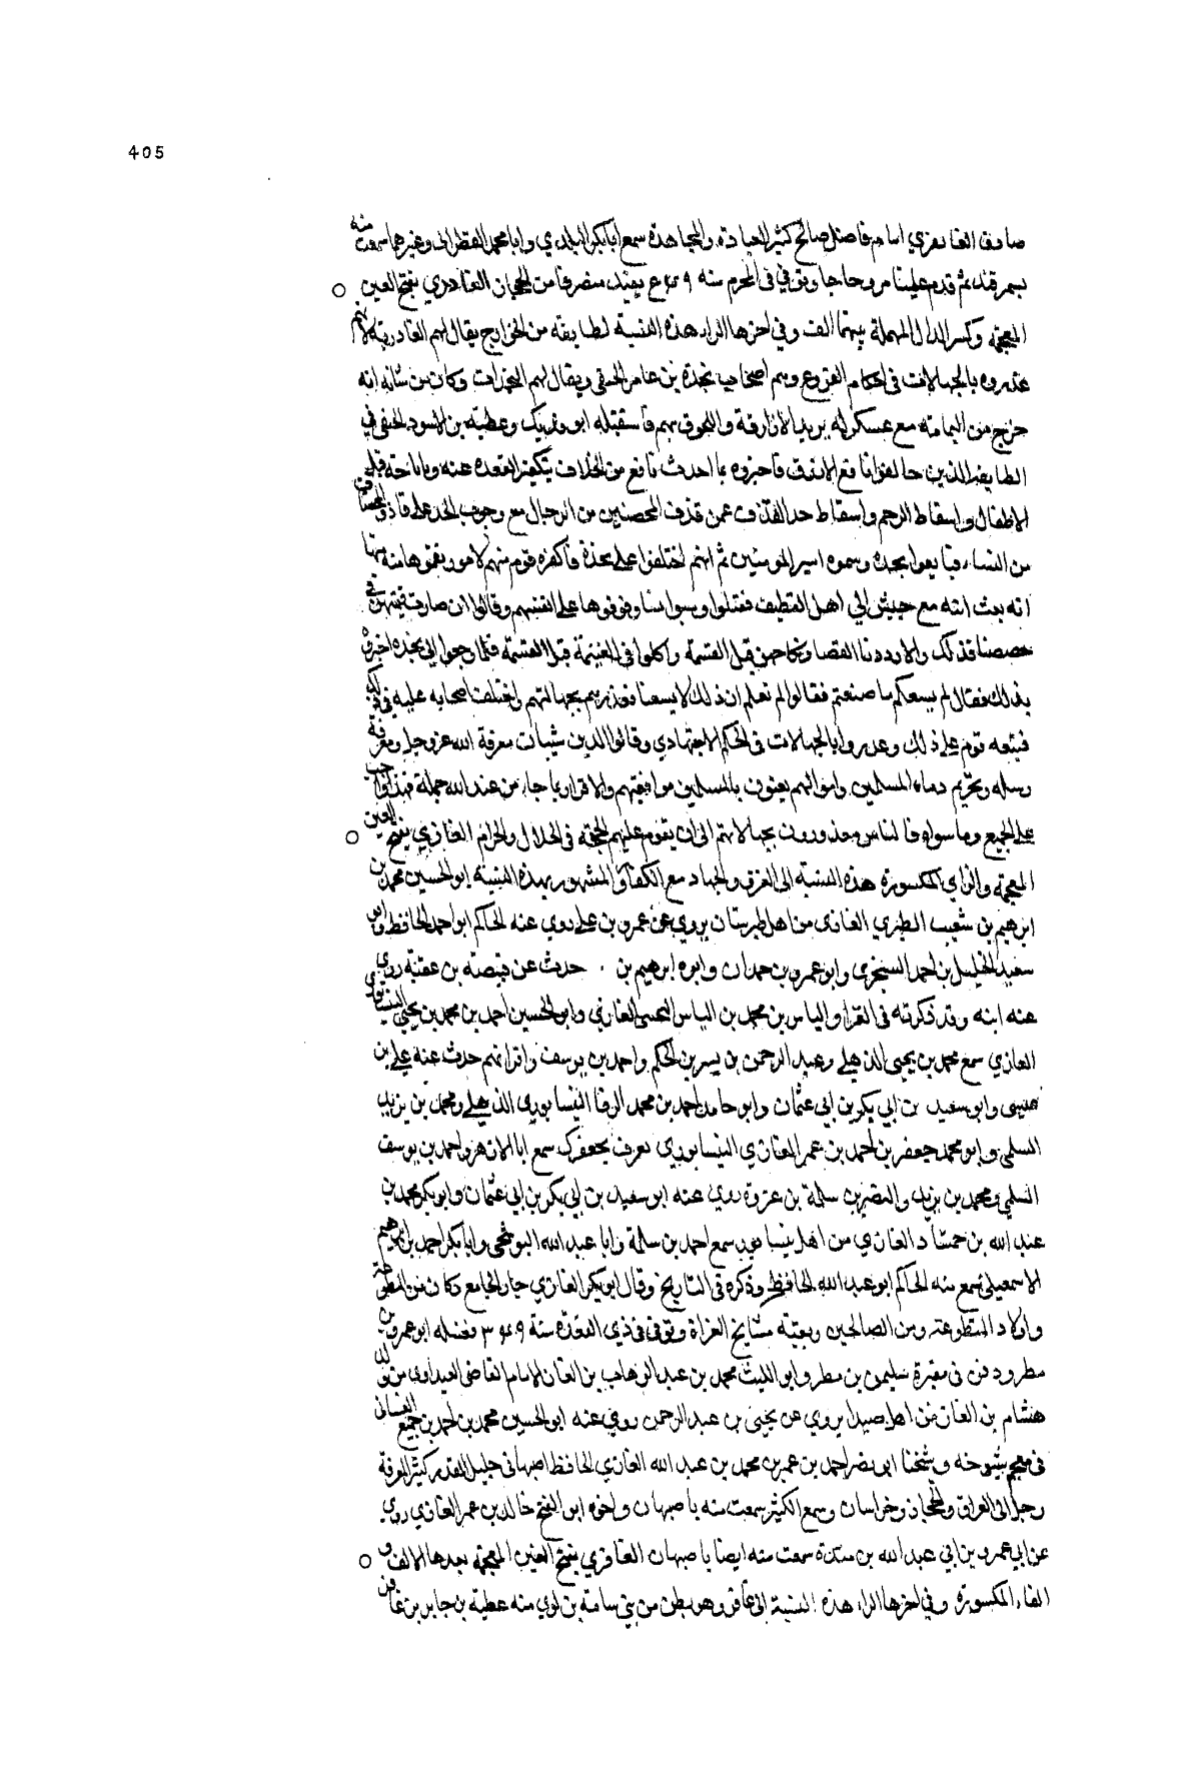 405
صادق الغانفزي امام فاضل صالح كثير العبادة والمجاهدة سمع ابا بكر البلدي وابا محمد القطواني وغيرهما سمعت منه
بسمرقند ثم قدم علينا مرو حاجا وتوفي في المحرم سنه بفيد منصرفا من الحجاز الغادري بفتح الغين
المعجمة وكسر الدال المهملة بينهما الف وفي اخرها الراء هذه النسبة لطايفة من الخوارج يقال لهم الغادرية لانهم
عذروه بالجهالات في احكام الفروع وهم اصحاب نجدة بن عامر الحنفي ويقال لهم النجدات وكان من شانه انه
خرج من اليمامة مع عسكر له يريد الازارقة واللحوق بهم فاستقبله ابو فديك وعطية بن الاسود الحنفي في
الطايفة الذين خالفوا نافع الازرق فاخبروه بما احدث نافع من الخلاف بتكفير القعدة عنه وباباحة قتل
الاطفال واسقاط الرجم واسقاط حد القذف عمن قذف المحصنين من الرجال مع وجوب الحد على قاذف المحصنات
من النساء فبايعوا نجدة وسموه امير المومنين ثم انهم اختلفوا على نجدة فاكفره قوم منهم لامور نقموها منه منها
انه بعث ابنه مع جيش الي اهل القطيف فقتلوا وسبوا منا وقوموها على انفسهم وقالوا ان صارت قيمتهن في
حصصنا فذلك والا رددنا الفضل ونكاحهن قبل القسمة واكلوا في الغنيمة قبل القسمة فلما رجعوا الى نجدة اخبروه
بذلك فقال لم يسعكم ما صنعتم فقالوا لم نعلم ان ذلك لا يسعنا فعذرهم بجهالتهم واختلف اصحابه عليه في ذلك
فتبعه قوم على ذلك وعذروا بالجهالات في الحكم الاجتهادي وقالوا الدين شيات معرفة الله عز وجل ومعرفة
رسله وتحريم دماء المسلمين واموالهم يعنون بالمسلمين موافقيهم والاقرار بما جاء من عند الله جملة فهذا واجب
على الجميع وما سواه فالناس معذورون بجهالاتهم الى ان يقوم عليهم الحجة في الحلال والحرام الغازي بفتح الغين
المعجمة والزاي المكسورة هذه النسبة الى الغزو والجهاد مع الكفار والمشهور بهذه النسبة ابو الحسين محمد بن
ابرهيم بن شعيب الطبري الغازي من اهل طبرستان يروي عن عمرو بن على روي عنه الحاكم ابو احمد الحافظ وابو
سعيد الخليل بن احمد السجزي وابو عمرو بن حمدان وابوه ابرهيم بن حدث عن قبيصة بن عقبة روي
عنه ابنه وقد ذكرته في القرا والياس بن محمد بن الياس الغازي وابو الحسين احمد بن محمد بن يحيى النيسابوري
الغازي سمع محمد بن يحيى الذهلي وعبد الرحمن بن بسر بن الحكم واحمد بن يوسف واقرانهم حدث عنه على بن
عيسى وابو سعيد بن ابي بكر بن ابي عثمان وابو حامد احمد بن محمد الرفا النيسابوري الذهلي ومحمد بن يزيد
السلمي وابو محمد جعفر بن احمد بن عمر الغازي النيسابوري يعرف بجعفرك سمع ابا الازهر واحمد بن يوسف
السلمي ومحمد بن يزيد والنضر بن سلمة بن عروة روي عنه ابو سعيد بن ابي بكر بن ابي عثمان وابو بكر محمد بن
عبد الله بن حمشاد الغازي من اهل نيسابور سمع احمد بن سلمة وابا عبد الله البوشنجي وابا بكر احمد بن ابرهيم
الاسمعيلي سمع منه الحاكم ابو عبد الله الحافظ وذكره في التاريخ وقال ابو بكر الغازي جار الجامع وكان من المطوعة
واولاد المتطوعة ومن الصالحين وبقية مشايخ الغزاة وتوفي في ذي القعدة سنة وغسله ابو عمرو بن
مطر ودفن في مقبرة سليمن بن مطر وابو الليث محمد بن عبد الوهاب بن الغاز الامام القاضي الصيداوي من ولد
هشام بن الغاز من اهل صيدا يروي عن يحيى بن عبد الرحمن روي عنه ابو الحسين محمد بن احمد بن جميع الغساني
في معجم شيوخه وشيخنا ابو نصر احمد بن عمر بن محمد بن عبد الله الغازي الحافظ اصبهاني جليل القدر كثير المعرفة
رحل الى العراق والحجاز وخراسان وسمع الكثير سمعت منه باصبهان واخوه ابو الفتح خالد بن عمر الغازي روي
عن ابي عمرو بن ابي عبد الله بن مندة سمعت منه ايضا باصبهان الغافري بفتح الغين المعجمة بعدها الالف و
الفاء المكسورة وفي اخرها الراء هذه النسبة الى غافر وهو بطن من بني سامة بن لوي منه عطية بن جابر بن غافر